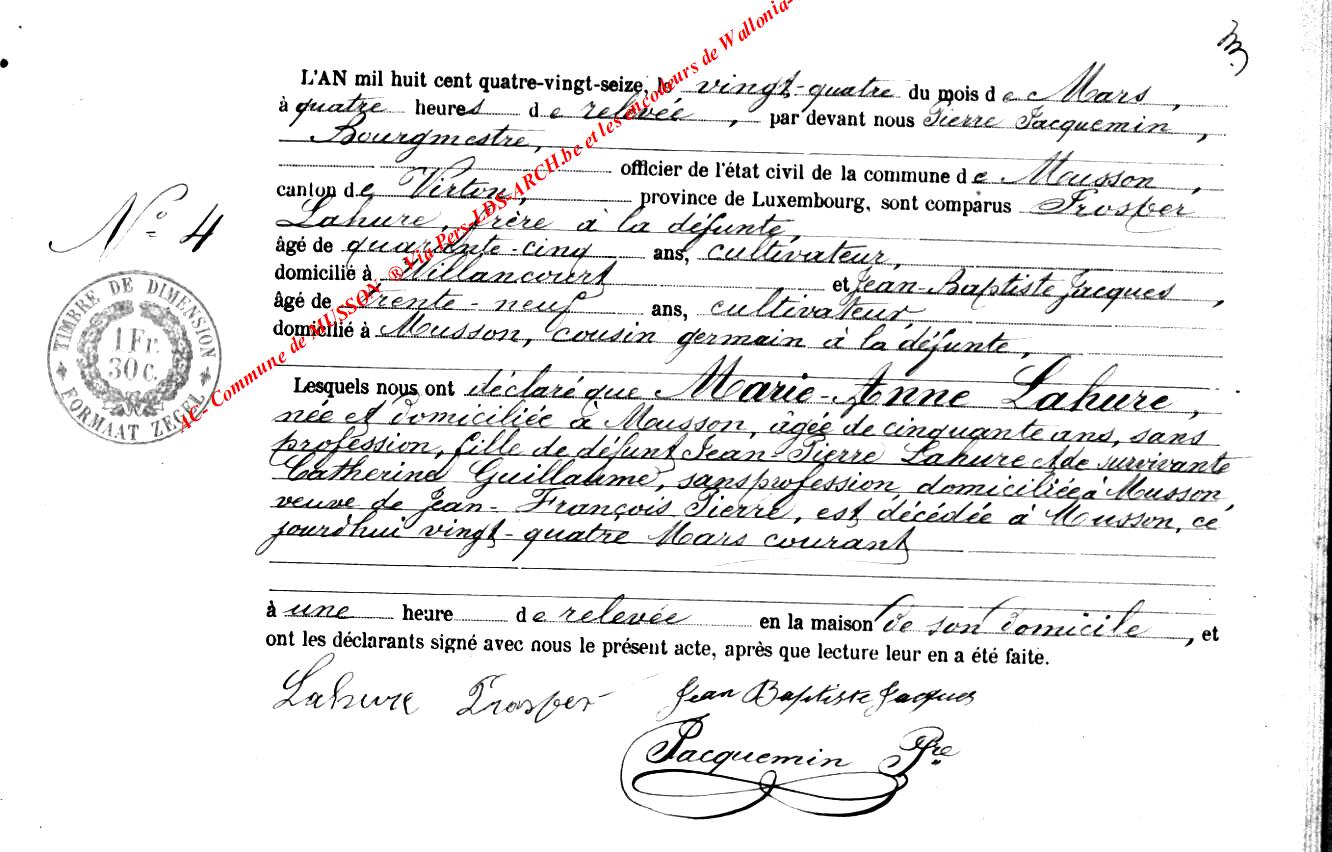 L'AN mil huit cent quatre-vingt-seize, le vingt-quatre du mois de Mars,
à quatre heures de relevée, par devant nous Pierre Jacquemin,
Bourgmestre,
officier de l'état civil de la commune de Musson,
canton de Virton, province de Luxembourg, sont comparus Prosper
Lahure, frère à la défunte,
âgé de quarante-cinq ans, cultivateur,
domicilié à Willancourt et Jean-Baptiste Jacques,
âgé de trente-neuf ans, cultivateur,
domicilié à Musson, cousin germain à la défunte,
N° 4
TIMBRE DE DIMENSION
1 Fr.
30 C.
FORMAAT ZEGEL
AC- Commune de MUSSON ® Via Pers-LDS-ARCH.be et les encodeurs de Wallonia-
Lesquels nous ont déclaré que Marie-Anne Lahure,
née et domiciliée à Musson, âgée de cinquante ans, sans
profession, fille de défunt Jean-Pierre Lahure et de survivante
Catherine Guillaume, sans profession, domiciliée à Musson,
veuve de Jean-François Pierre, est décédée à Musson, ce
jourd'hui vingt-quatre Mars courant
à une heure de relevée en la maison de son domicile, et
ont les déclarants signé avec nous le présent acte, après que lecture leur en a été faite.
Lahure Prosper Jean Baptiste Jacques
Jacquemin Pre